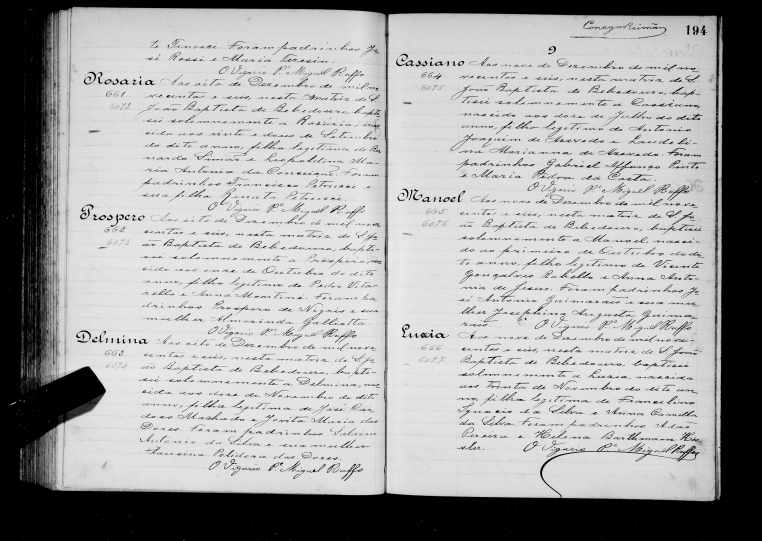 te Tinocci Foram padrinhos Jo-
sé Rossi e Maria Teresin.
O Vigario Pe Miguel Ruffo
Rosaria Aos oito de Dezembro de mil no
661 vecentos e seis, nesta matriz de S
João Baptista de Bebedouro, bapti-
sei solemnemente a Rosaria, nas
cida aos vinte e dous de Setembro
do dito anno, filha legitima de Ber
nardo Simão e Leopoldina Ma
ria Antonia da Conceição Foram
padrinhos Francisco Petrucci e
sua filha Renata Petrucci
O Vigario Pe Miguel Ruffo
Prospero Aos oito de Dezembro de mil nove
662 centos e seis, nesta matriz de S Jo-
ão Baptista de Bebedouro, bapti-
sei solemnemente a Prospero, nas
cido aos onze de Outubro do dito
anno, filho legitimo de Pedro Vita
rello e Anna Martins. Foram pa
drinhos Prospero de Nigris e sua
mulher Almerinda
O Vigario Pe Miguel Ruffo
Delmina Aos oito de Dezembro de mil nove
663 centos e seis, nesta matriz de S Jo-
ão Baptista de Bebedouro, bapti-
sei solemnemente a Delmina, nas
cida aos doze de Novembro do dito
anno, filha legitima de José Car
doso Machado e Jovita Maria das
Dores. Foram padrinhos
Antonio da Silva e sua mulher
Polidora das Dores.
O Vigario Pe Miguel Ruffo
194
9
Cassiano Aos nove de Dezembro de mil no
664 vecentos e seis, nesta matriz de S
6075 João Baptista de Bebedouro, bap-
tisei solemnemente a Cassiano
nascido aos doze de Julho do dito
anno, filho legitimo de Antonio
Joaquim de Azevedo e Laudeli-
na Marianna de Azevedo Foram
padrinhos Gabriel Affonso Pinto
e Maria Pedra da Costa.
O Vigario Pe Miguel Ruffo
Manoel Aos nove de Dezembro de mil nove
665 centos e seis, nesta matriz de S Jo-
6076 ão Baptista de Bebedouro, baptisei
solemnemente a Manoel, nasci-
do ao primeiro de Outubro do di-
to anno, filho legitimo de Vicente
Gonçalves Rabello e Anna Anto
nia de Jesus. Foram padrinhos Jo-
sé Antonio Guimarães e sua mu
lher Josephina Augusta Guima
rães. O Vigario Pe Miguel Ruffo
Luzia Aos nove de Dezembro de mil nove-
666 centos e seis, nesta matriz de S João
6077 Baptista de Bebedouro, baptisei
solemnemente a Luzia, nascida
aos trinta de Novembro do dito an
no, filha legitima de Francelino
Ignacio da Silva e Anna Camilla
da Silva Foram padrinhos Adão
Pereira e Helena
O Vigario Pe Miguel Ruffo